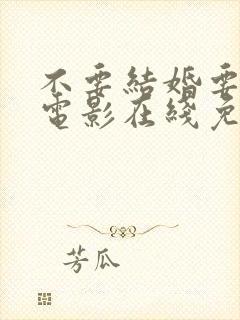 不要結婚要
電影在綫免
芳瓜